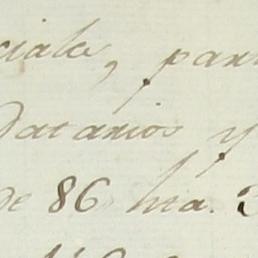 ciala, par
datarios y
de 86 ha. 3